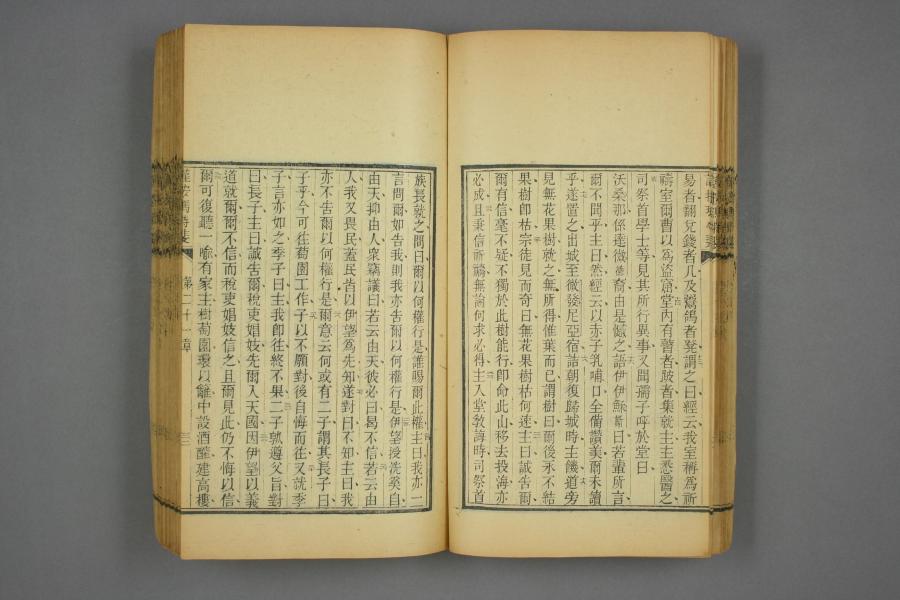 易者翻兌錢者几及鬻鴿者凳謂之曰經云我室稱爲祈
禱室爾曹以爲盜窟堂內有瞽者跛者集就主主悉醫之
司祭首學士等見其所行異事又聞孺子呼於堂曰
沃桑那係達微裔由是憾之語伊伊穌斯曰若輩所言
爾不聞乎主曰然經云以赤子乳哺口全備讚美爾未讀
乎遂置之出城至微發尼亞宿詰朝復歸城時主饑道旁
見無花果樹就之無所得惟葉而已謂樹曰爾後永不結
果樹即枯宗徒見而奇曰無花果樹枯何速主曰誠告爾
爾有信毫不疑不獨於此樹能行即命此山移去投海亦
必成且秉信祈禱無論何求必得主入堂敎誨時司祭首
族長就之問曰爾以何權行是誰賜爾此權主曰我亦一
言問爾如告我則我亦告爾以何權行是伊望授洗奚自
由天抑由人衆竊議曰若云由天彼必曰曷不信若云由
人我又畏民蓋民皆以伊望爲先知遂對曰不知主曰我
亦不告爾以何權行是爾意云何或有二子謂其長子曰
子乎今可往萄園工作子以不願對後自悔而往又就季
子言亦如之季子曰主我即往終不果二子孰遵父旨對
曰長子主曰誠告爾稅吏娼妓先爾入天國因伊望以義
道就爾爾不信而稅吏娼妓信之且爾見此仍不悔以信
爾可復聽一喩有家主樹萄園環以籬中設酒醡建高樓
第二十一章
三